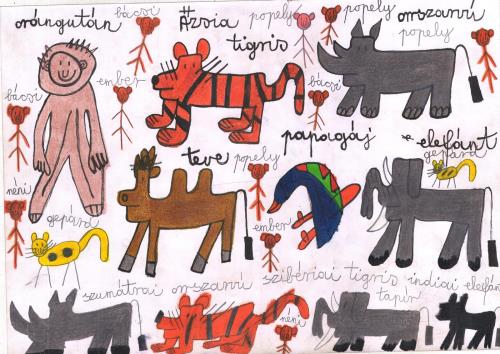 orángután bácsi Ázsia popely popely orszarvú
tigris popely
bácsi ember bácsi
teve popely papagáj elefánt
gepárd
néni gepárd ember
szibériai tigris indiai elefán
szumátrai orszarvú tapír
néni